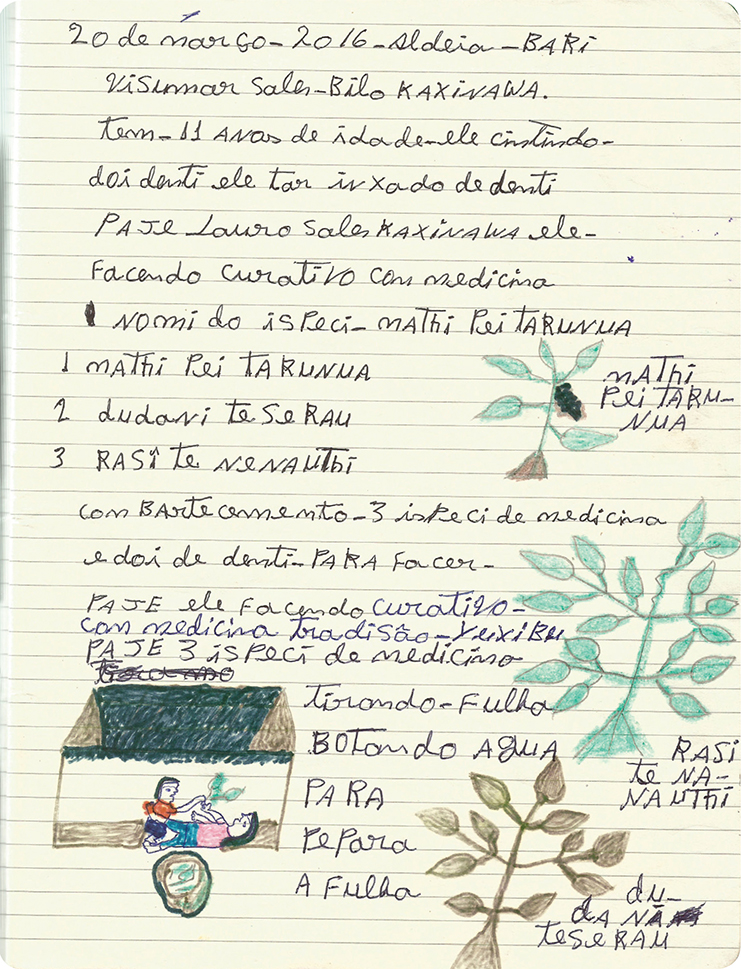 20 de março - 2016 - Aldeia - BARI
Visumar Sales - Bilo KAXINAWA.
tem - 11 ANAS de idade - ele cintindo -
doi denti ele tar inxado de denti
PAJE Lauro Sales KAXINAWA ele -
Facendo curativo com medicina
NOMi do ispeci - MATHi Pei TARUNUA
1 MATHi Pei TARUNUA
2 dudani te SE RAU
3 RASÎ te NENAUTHi
com BArtecemento - 3 ispeci de medicina
e doi de denti - PARA Facer -
PAJE ele Facendo curativo -
com medicina tradisão - Yuxibu
PAJE 3 ispeci de medicina
tirando - Fulha
BOTANdo AGUA
PARA
PePara
A Fulha
MATHi
Pei TARU-
NUA
RASi
te NA-
NAUTHi
du-
dA NÃ
teSe RAU